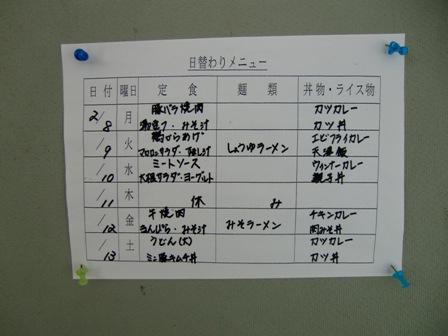 日替わりメニュー
日付 曜日 定食 麺類 丼物・ライス物
2/8 月 豚バラ焼肉 カツカレー
みそ汁 カツ丼
9 火 鶏からあげ しょうゆラーメン エビフライカレー
マカロニサラダ・ 天津飯
10 水 ミートソース ウィンナーカレー
大根サラダ・ヨーグルト 親子丼
11 木 休み
12 金 牛焼肉 みそラーメン チキンカレー
きんぴら・みそ汁 肉みそ丼
13 土 うどん(大) カツカレー
ミニ豚キムチ丼 カツ丼